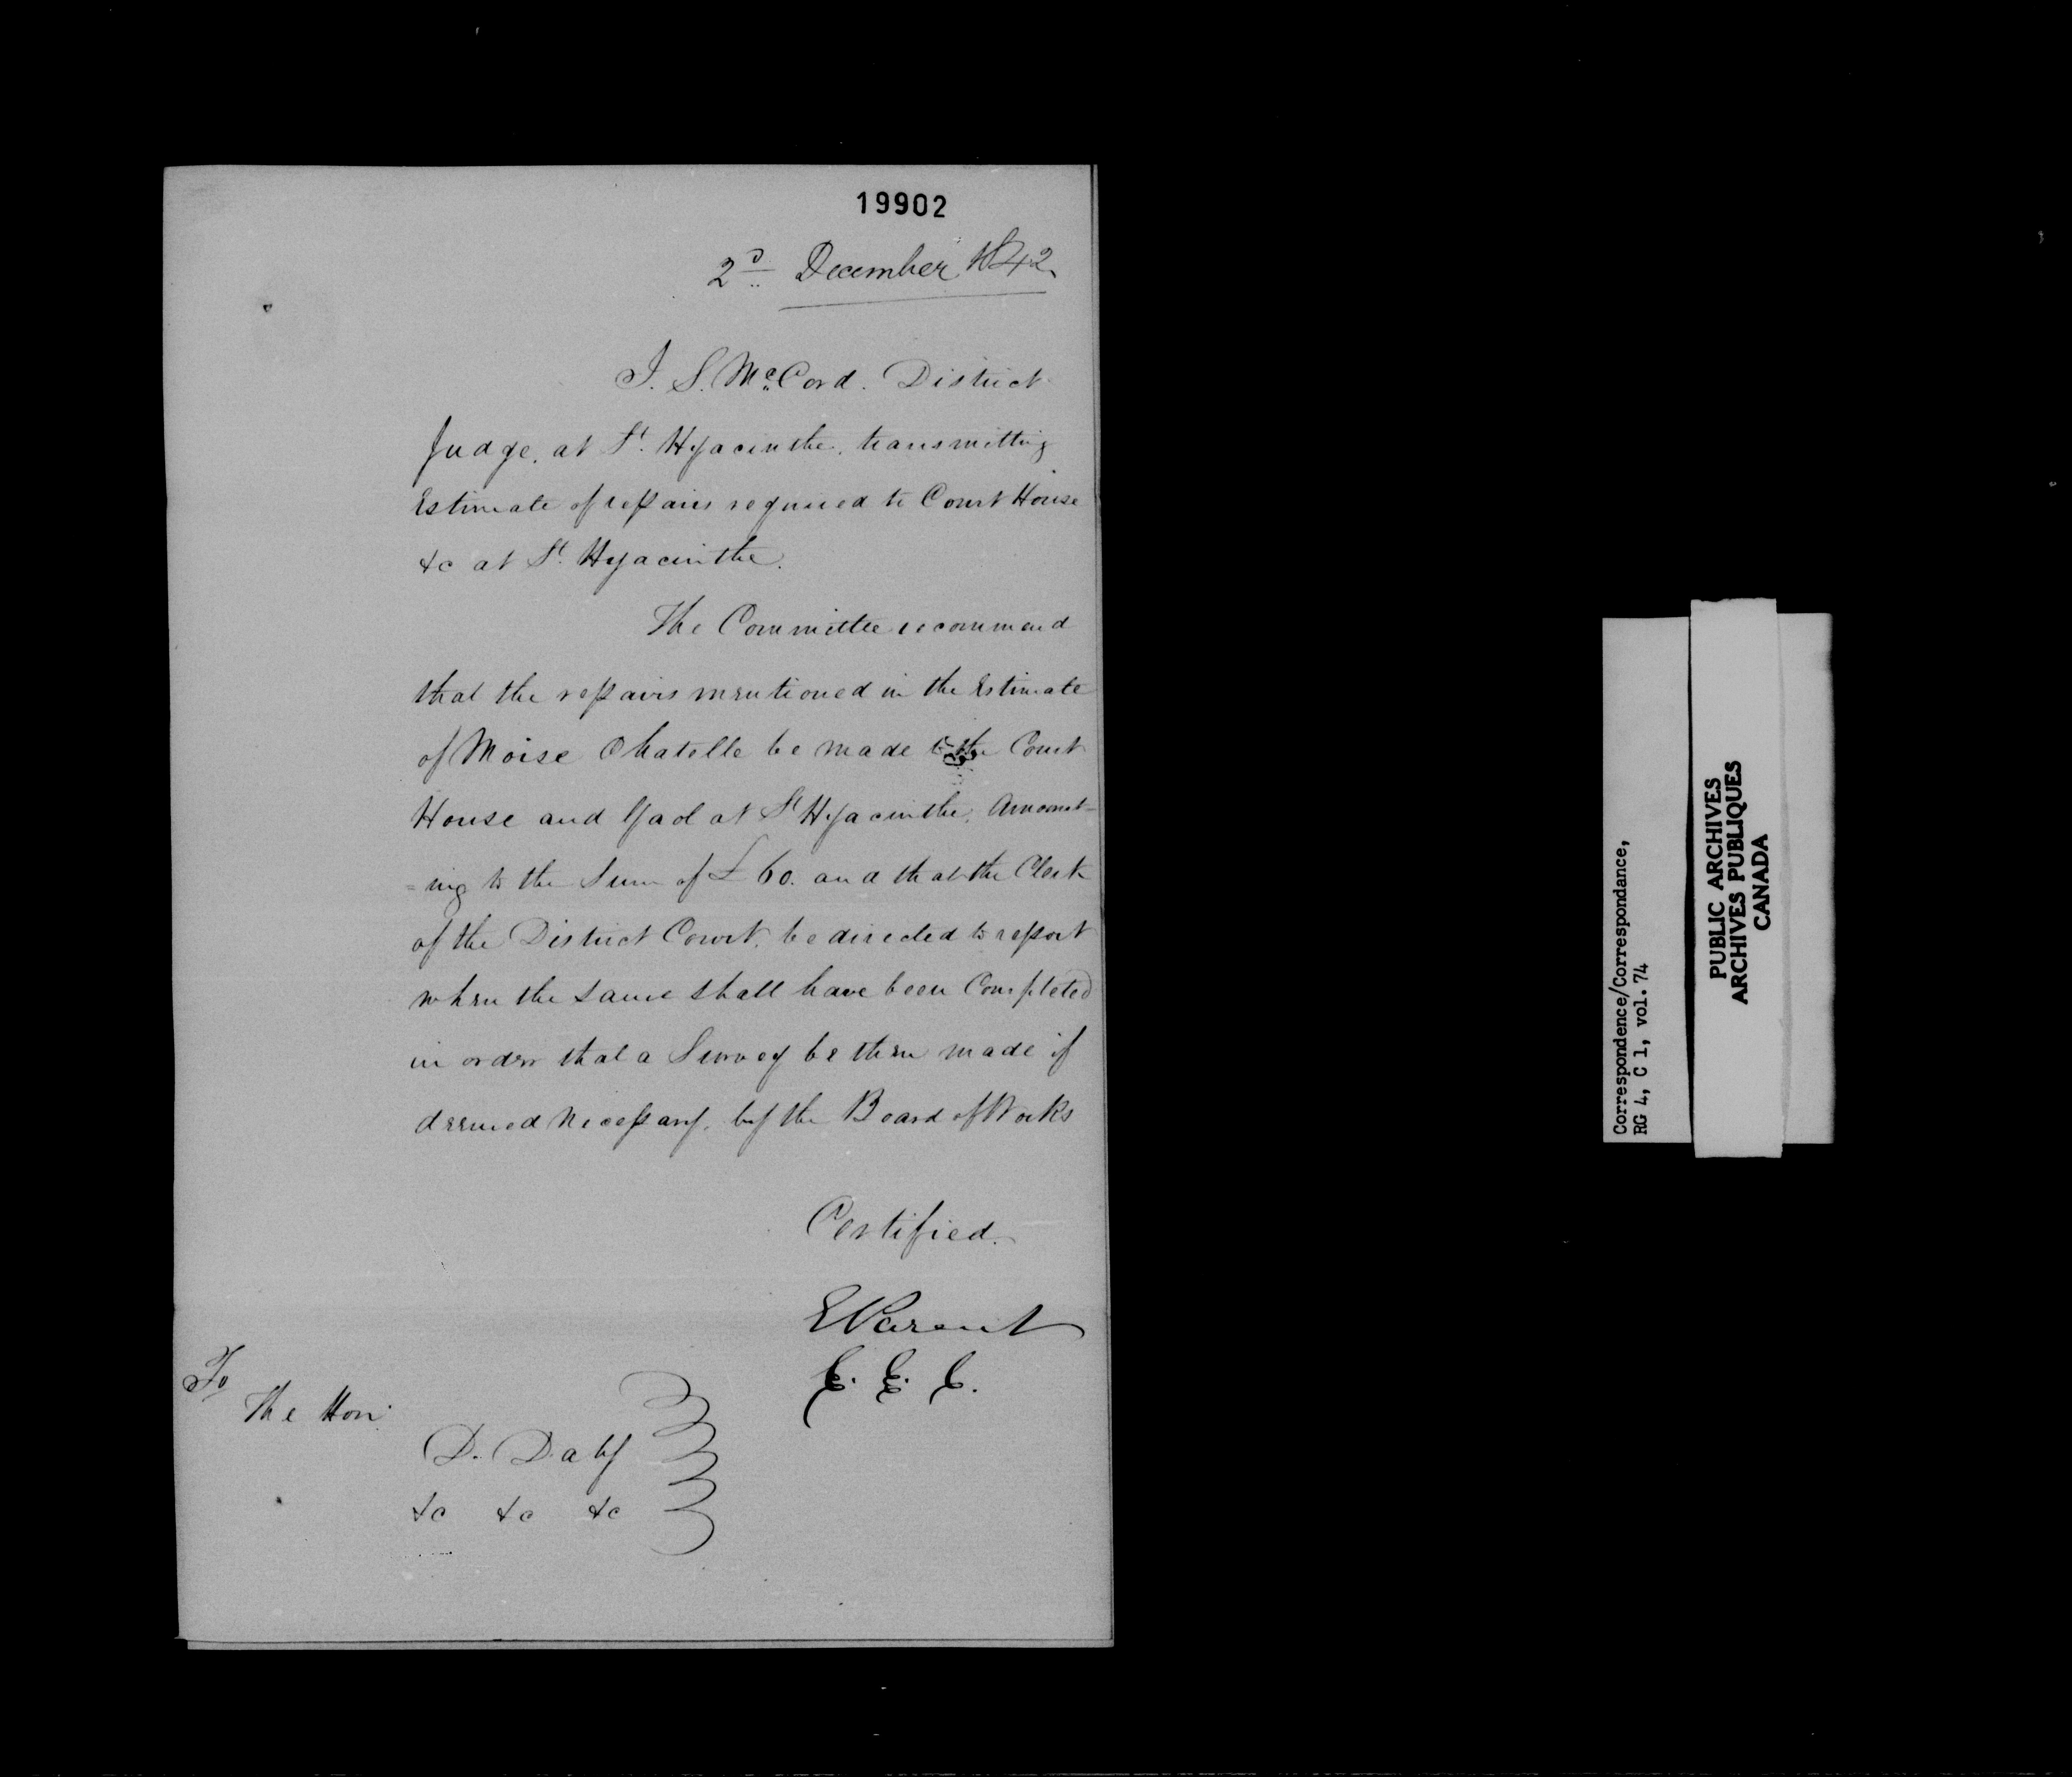 19902
2d December 1842
J. S. McCord. District
Judge, at St. Hyacinthe, transmitting
Estimate of repairs required to Court House
&c at St. Hyacinthe.
The Committee recommend
that the repairs mentioned in the Estimate
of Moise Chatelle be made to the Court
House and Gaol at St Hyacinthe, Amount-
=ing to the Sum of £60. and that the Clerk
of the District Court, be directed to report
when the same shall have been Completed
in order that a Survey be then made if
deemed necessary, by the Board of Works
Certified.
E Parent
C. E. C.
To
The Hon:
D. Daly
&c &c &c
Correspondence/Correspondance,
RG 4, C 1, vol. 74
PUBLIC ARCHIVES
ARCHIVES PUBLIQUES
CANADA